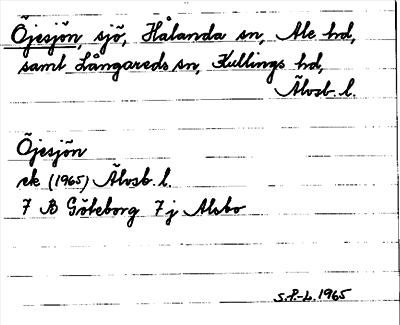 Öjesjön, sjö, Hålanda sn, Ale hd,
samt Långareds sn, Kullings hd,
Älvsb. l.
Öjesjön
ek (1965) Älvsb. l.
7 B Göteborg 7 j Alsbo
S.P.-L. 1965